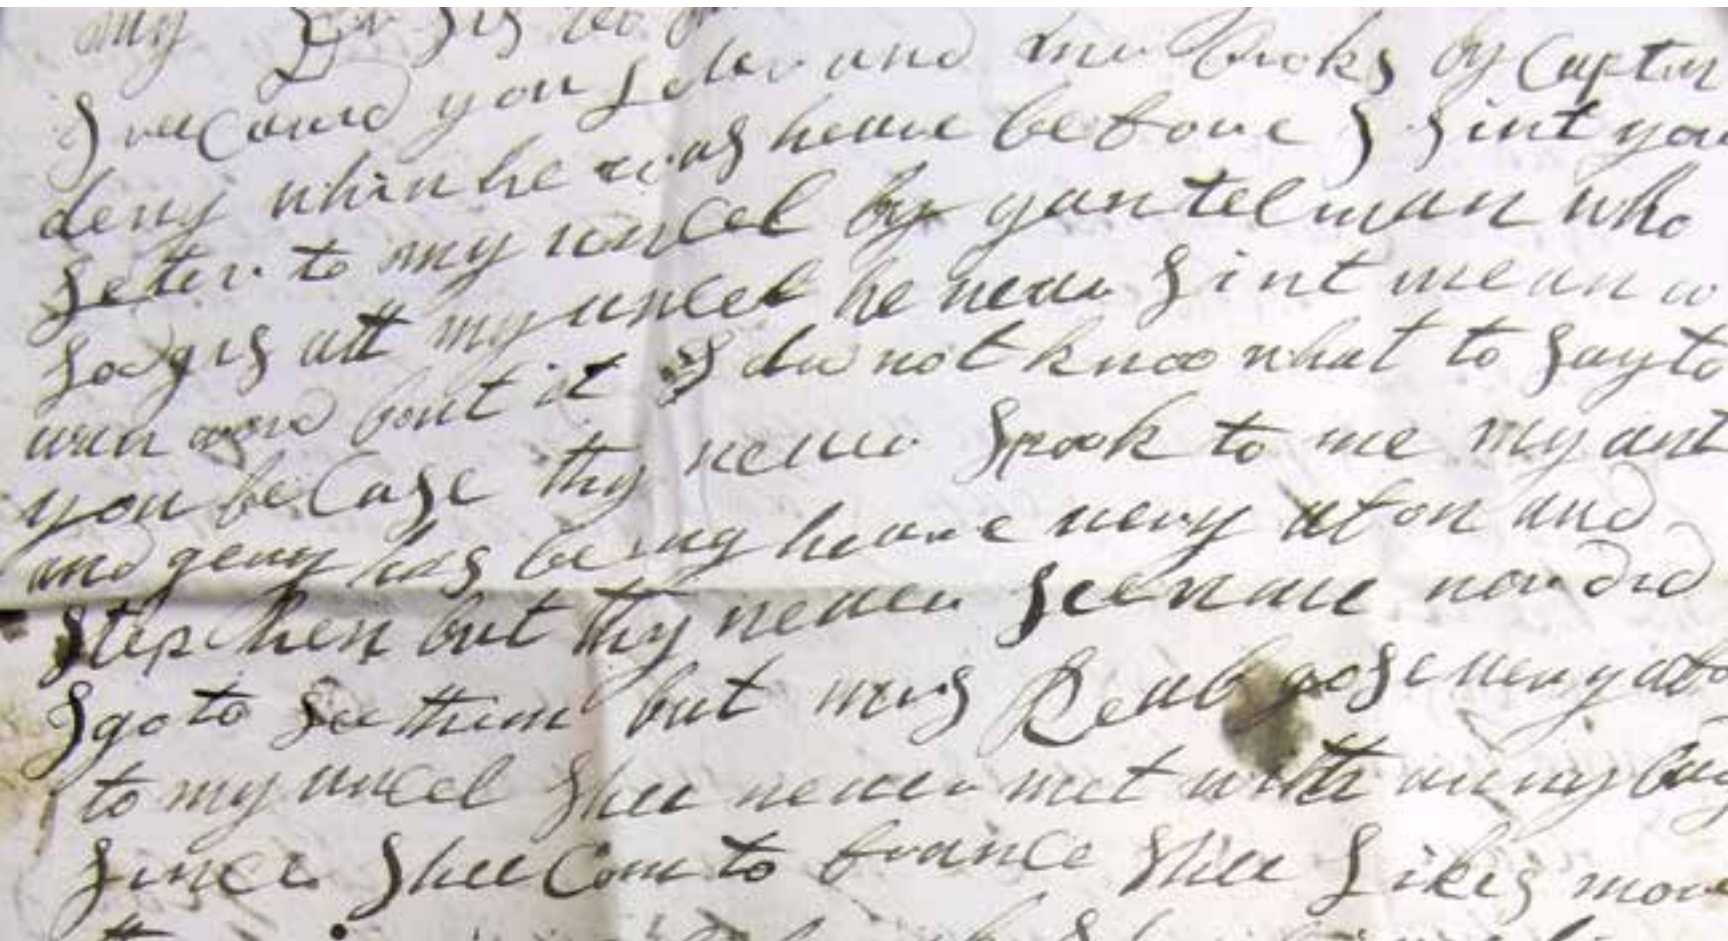 my
I rec'aued you Seter and two books by Capten
deny when he was heare before I Sint your
Seter to my uncel by gentelman who
Lodgis att my uncel he never Sint me an
wan word bout it I du not know what to Say to
you be Case thy never Spook to me my ant
and geny has being heare uery afon and
Stephen but thy never Seen me nor did
I go to See them but mis uery
to my uncel Shee never met with anny
Since Shee Com to france Shee Likes more